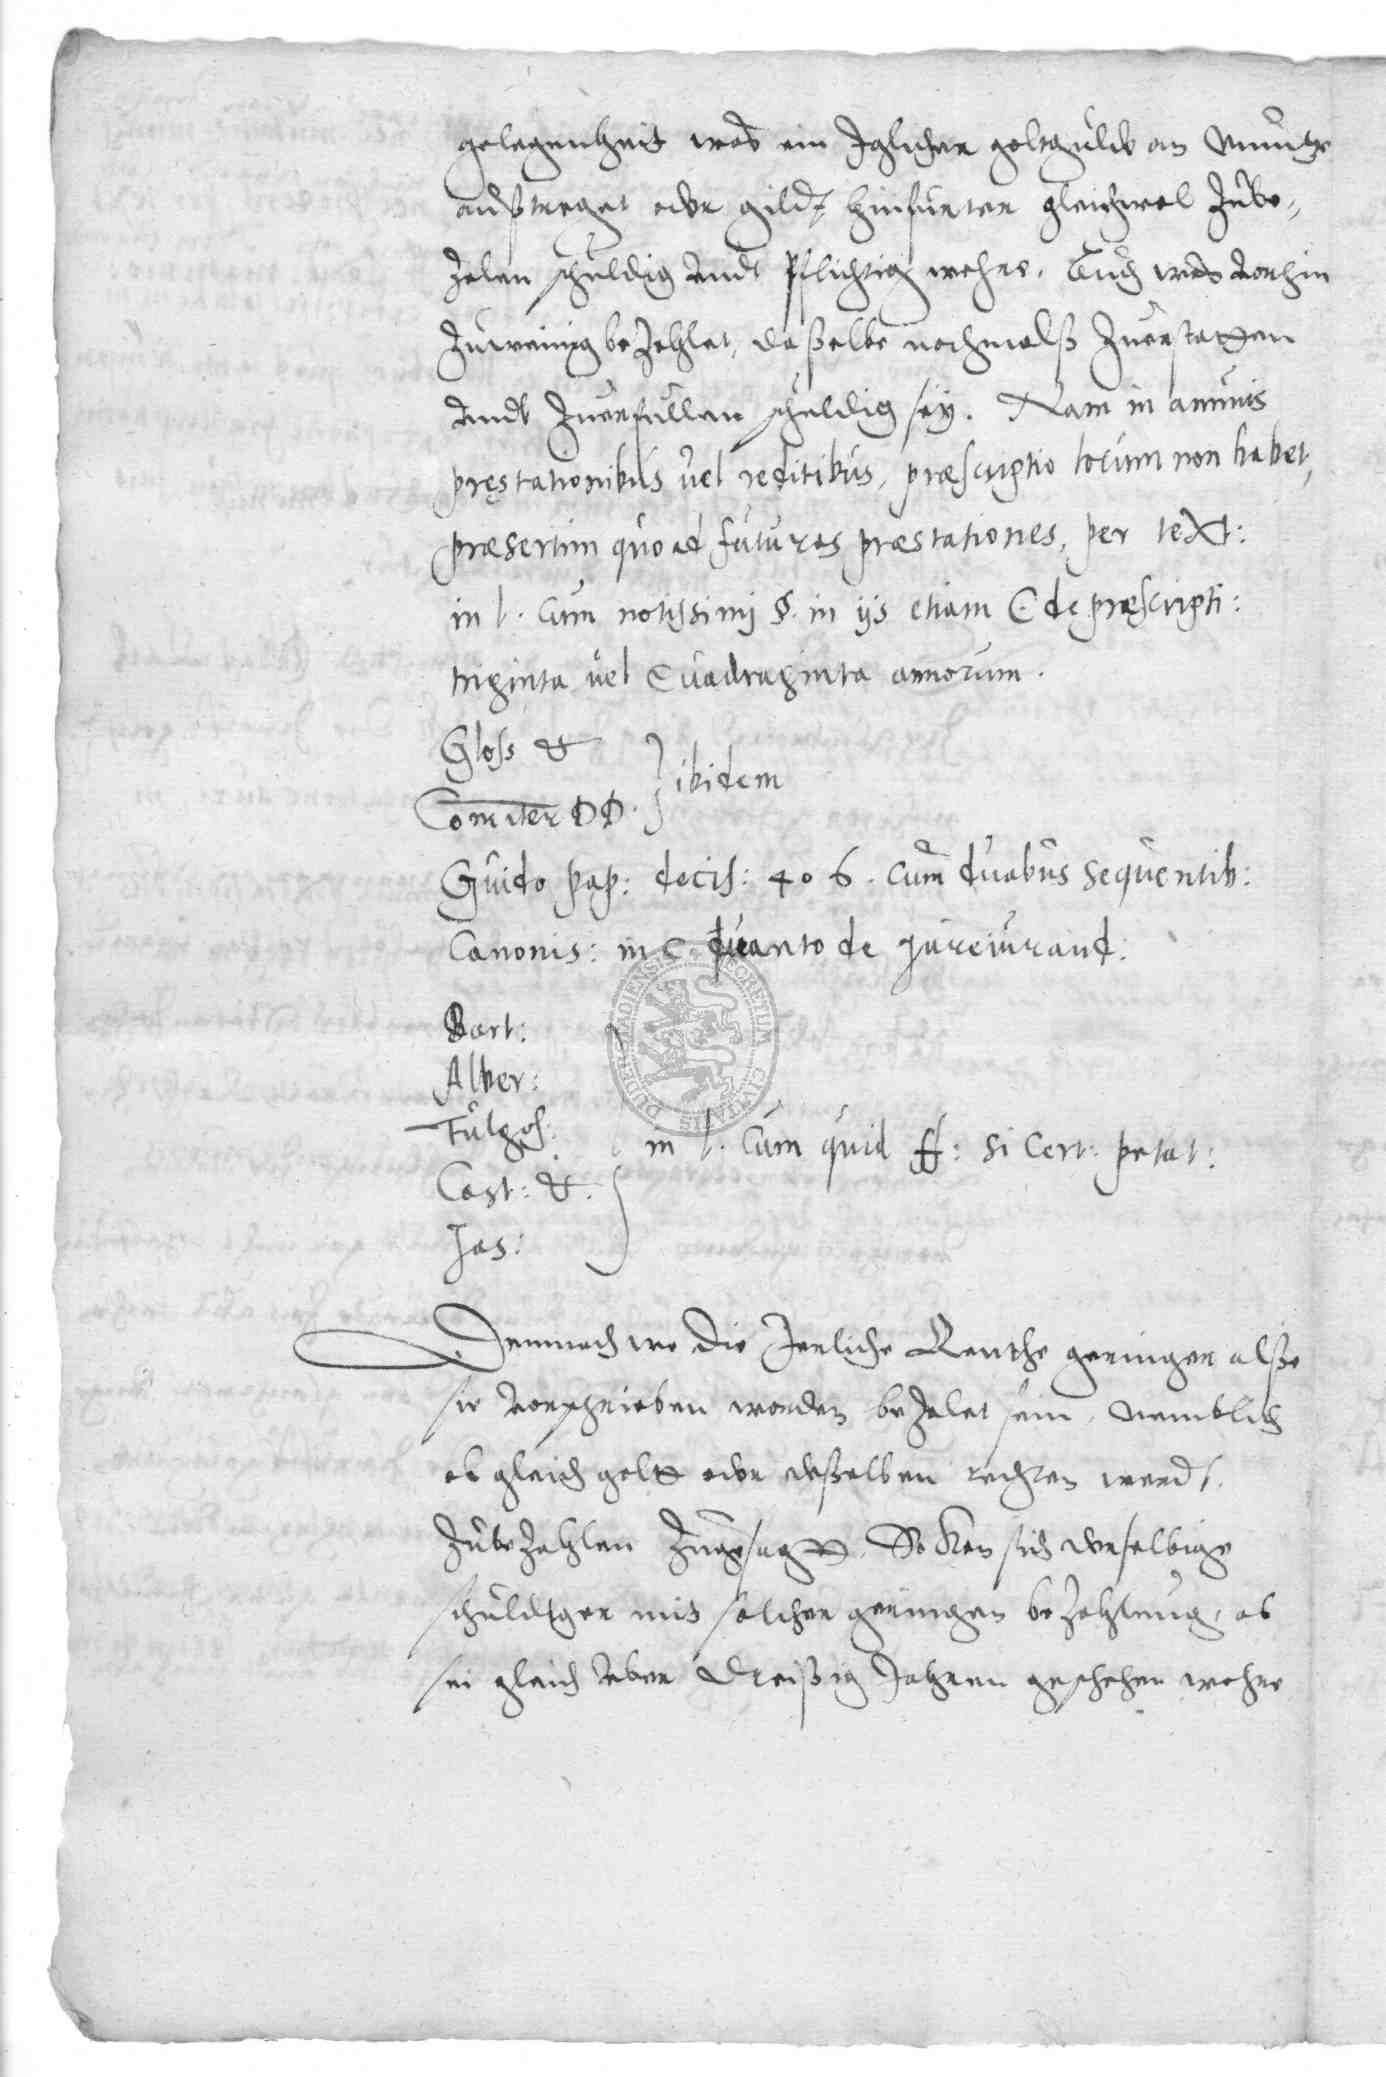 gelegenheit was ein Iglicher goltgulde an Müntze
außtreget oder gildt, hinfurter gleichwol Zube,
zalen schuldig undt Pflichtig wehre. Auch was vorhin
Zuweinig bezahlet, daßelbe nochmalß Zuerstatten
undt Zuerfullen schuldig sey. Nam in annuis
pręstationibus vel reditibus, præscriptio locum non habet,
præsertim quo ad futuras præstationes, per text:
in l. cum notissimi §. in iis etiam C. de præscripti:
triginta vel Quadraginta annorum.
Gloss &
Com̅iter DD. } ibidem
Guido pap: decis: 406. cum duabus sequentib:
Canonis: in C. quanto de jureiurand:
Bart:
Alber:
Fulgos:
in l. cum quid ff: si cert: petat:
Cast: &.
Jas:
Demnach wo die Jerliche Renthe geringer alße
sie vorschrieben worden bezalet sein, nemblich
ob gleich goltt oder deßelben rechten werdt
Zubezahlen Zugesagtt, So kan sich derselbige
schuldiger mit solcher geringen bezahlung, ob
sie gleich uber Dreißig Jahren geschehen wehre
PUDERSTADIENSIS CIVITATIS